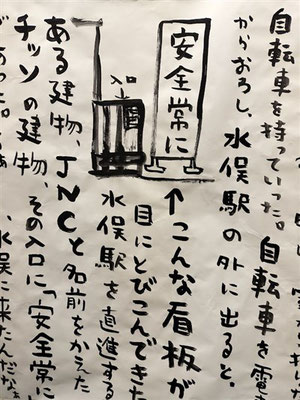 自転車を持っていった。自転車を電
からおろし、水俣駅の外に出ると。
安全常に
↑こんな看板が
目にとびこんできた
入口
水俣駅を直進する
ある建物、JNCと名前をかえた
チッソの建物、その入口に「安全常に
であった。 水俣に来たんだな